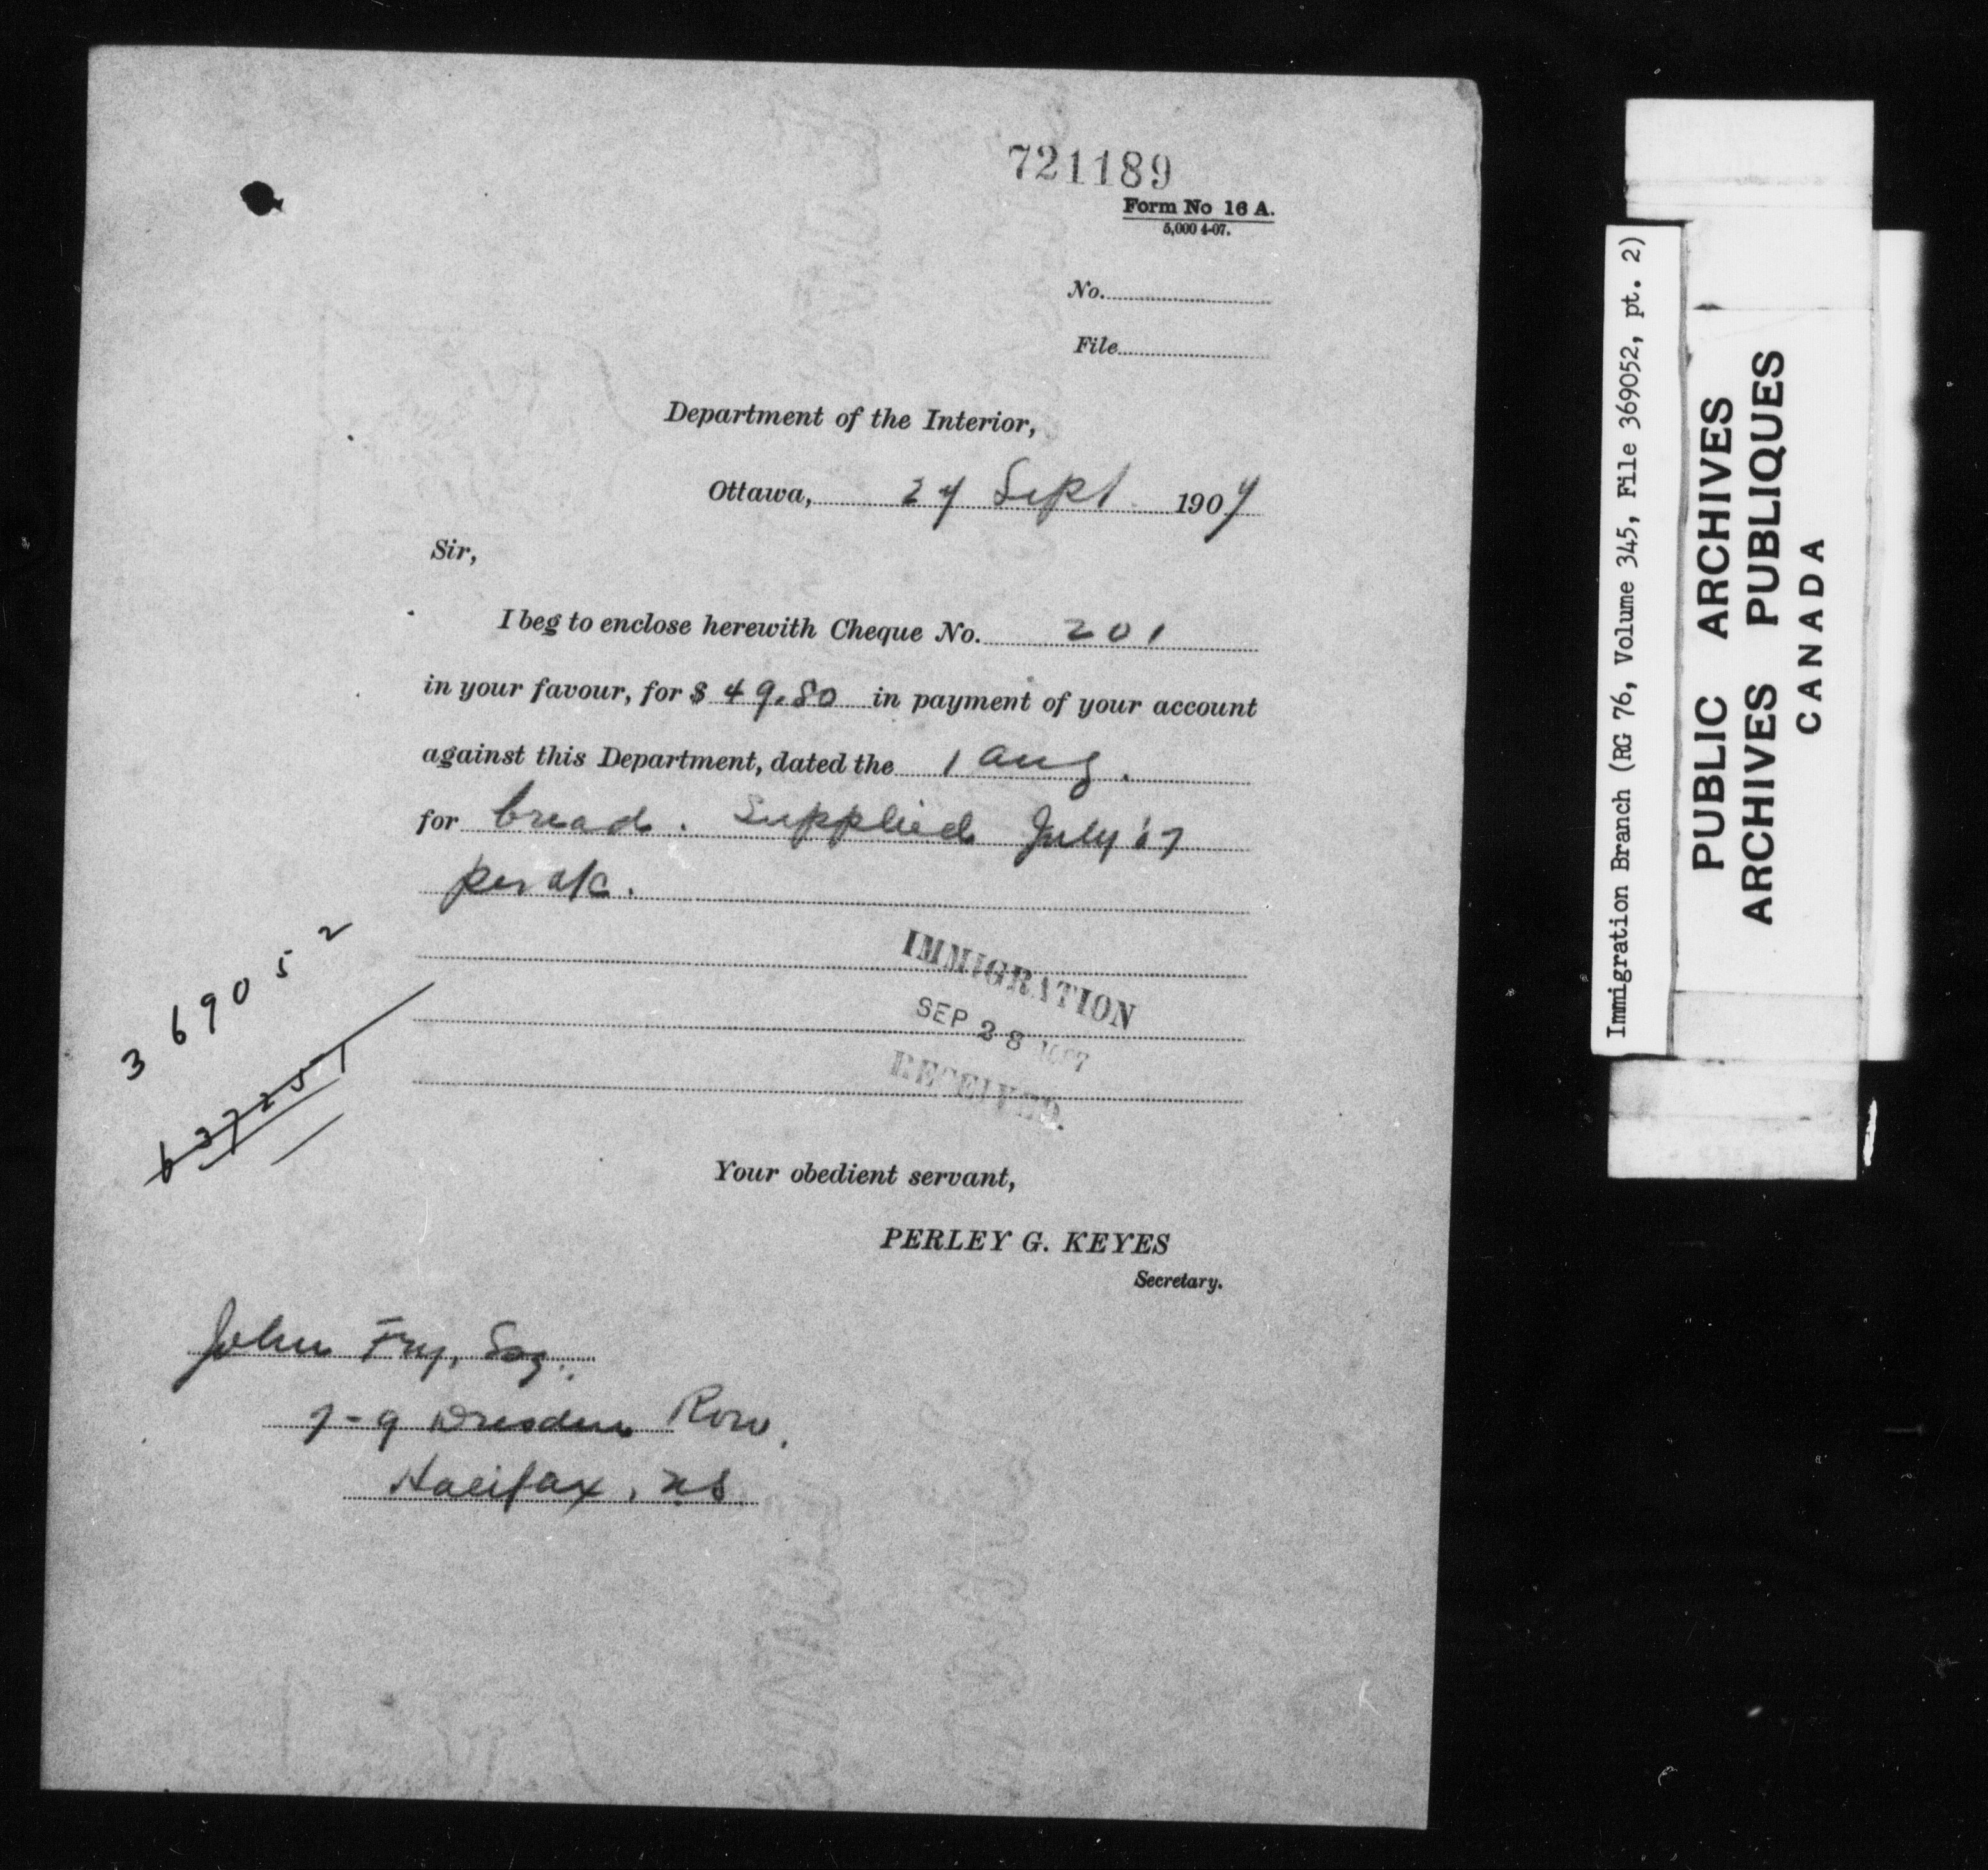 721189
Form No 16 A.
5,000 4-07.
No.
File
Department of the Interior,
Ottawa, 27 Sept. 1907
Sir,
I beg to enclose herewith Cheque No. 201
in your favour, for $ 49.80 in payment of your account
against this Department, dated the 1 Aug.
for bread. Supplied July '07
per a/c.
IMMIGRATION
SEP 28 1907
RECEIVED.
369052
637251
Your obedient servant,
PERLEY G. KEYES
Secretary.
John Fry, Esq.
7-9 Dresden Row,
Halifax, NS.
Immigration Branch (RG 76, Volume 345, File 369052, pt. 2)
PUBLIC ARCHIVES
ARCHIVES PUBLIQUES
CANADA